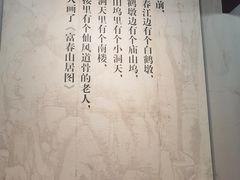 前，
春江边有个白鹤墩，
鹤墩边有个庙山坞，
山坞里有个小洞天，
洞天里有个南楼，
楼里有个仙风道骨的老人，
人画了《富春山居图》